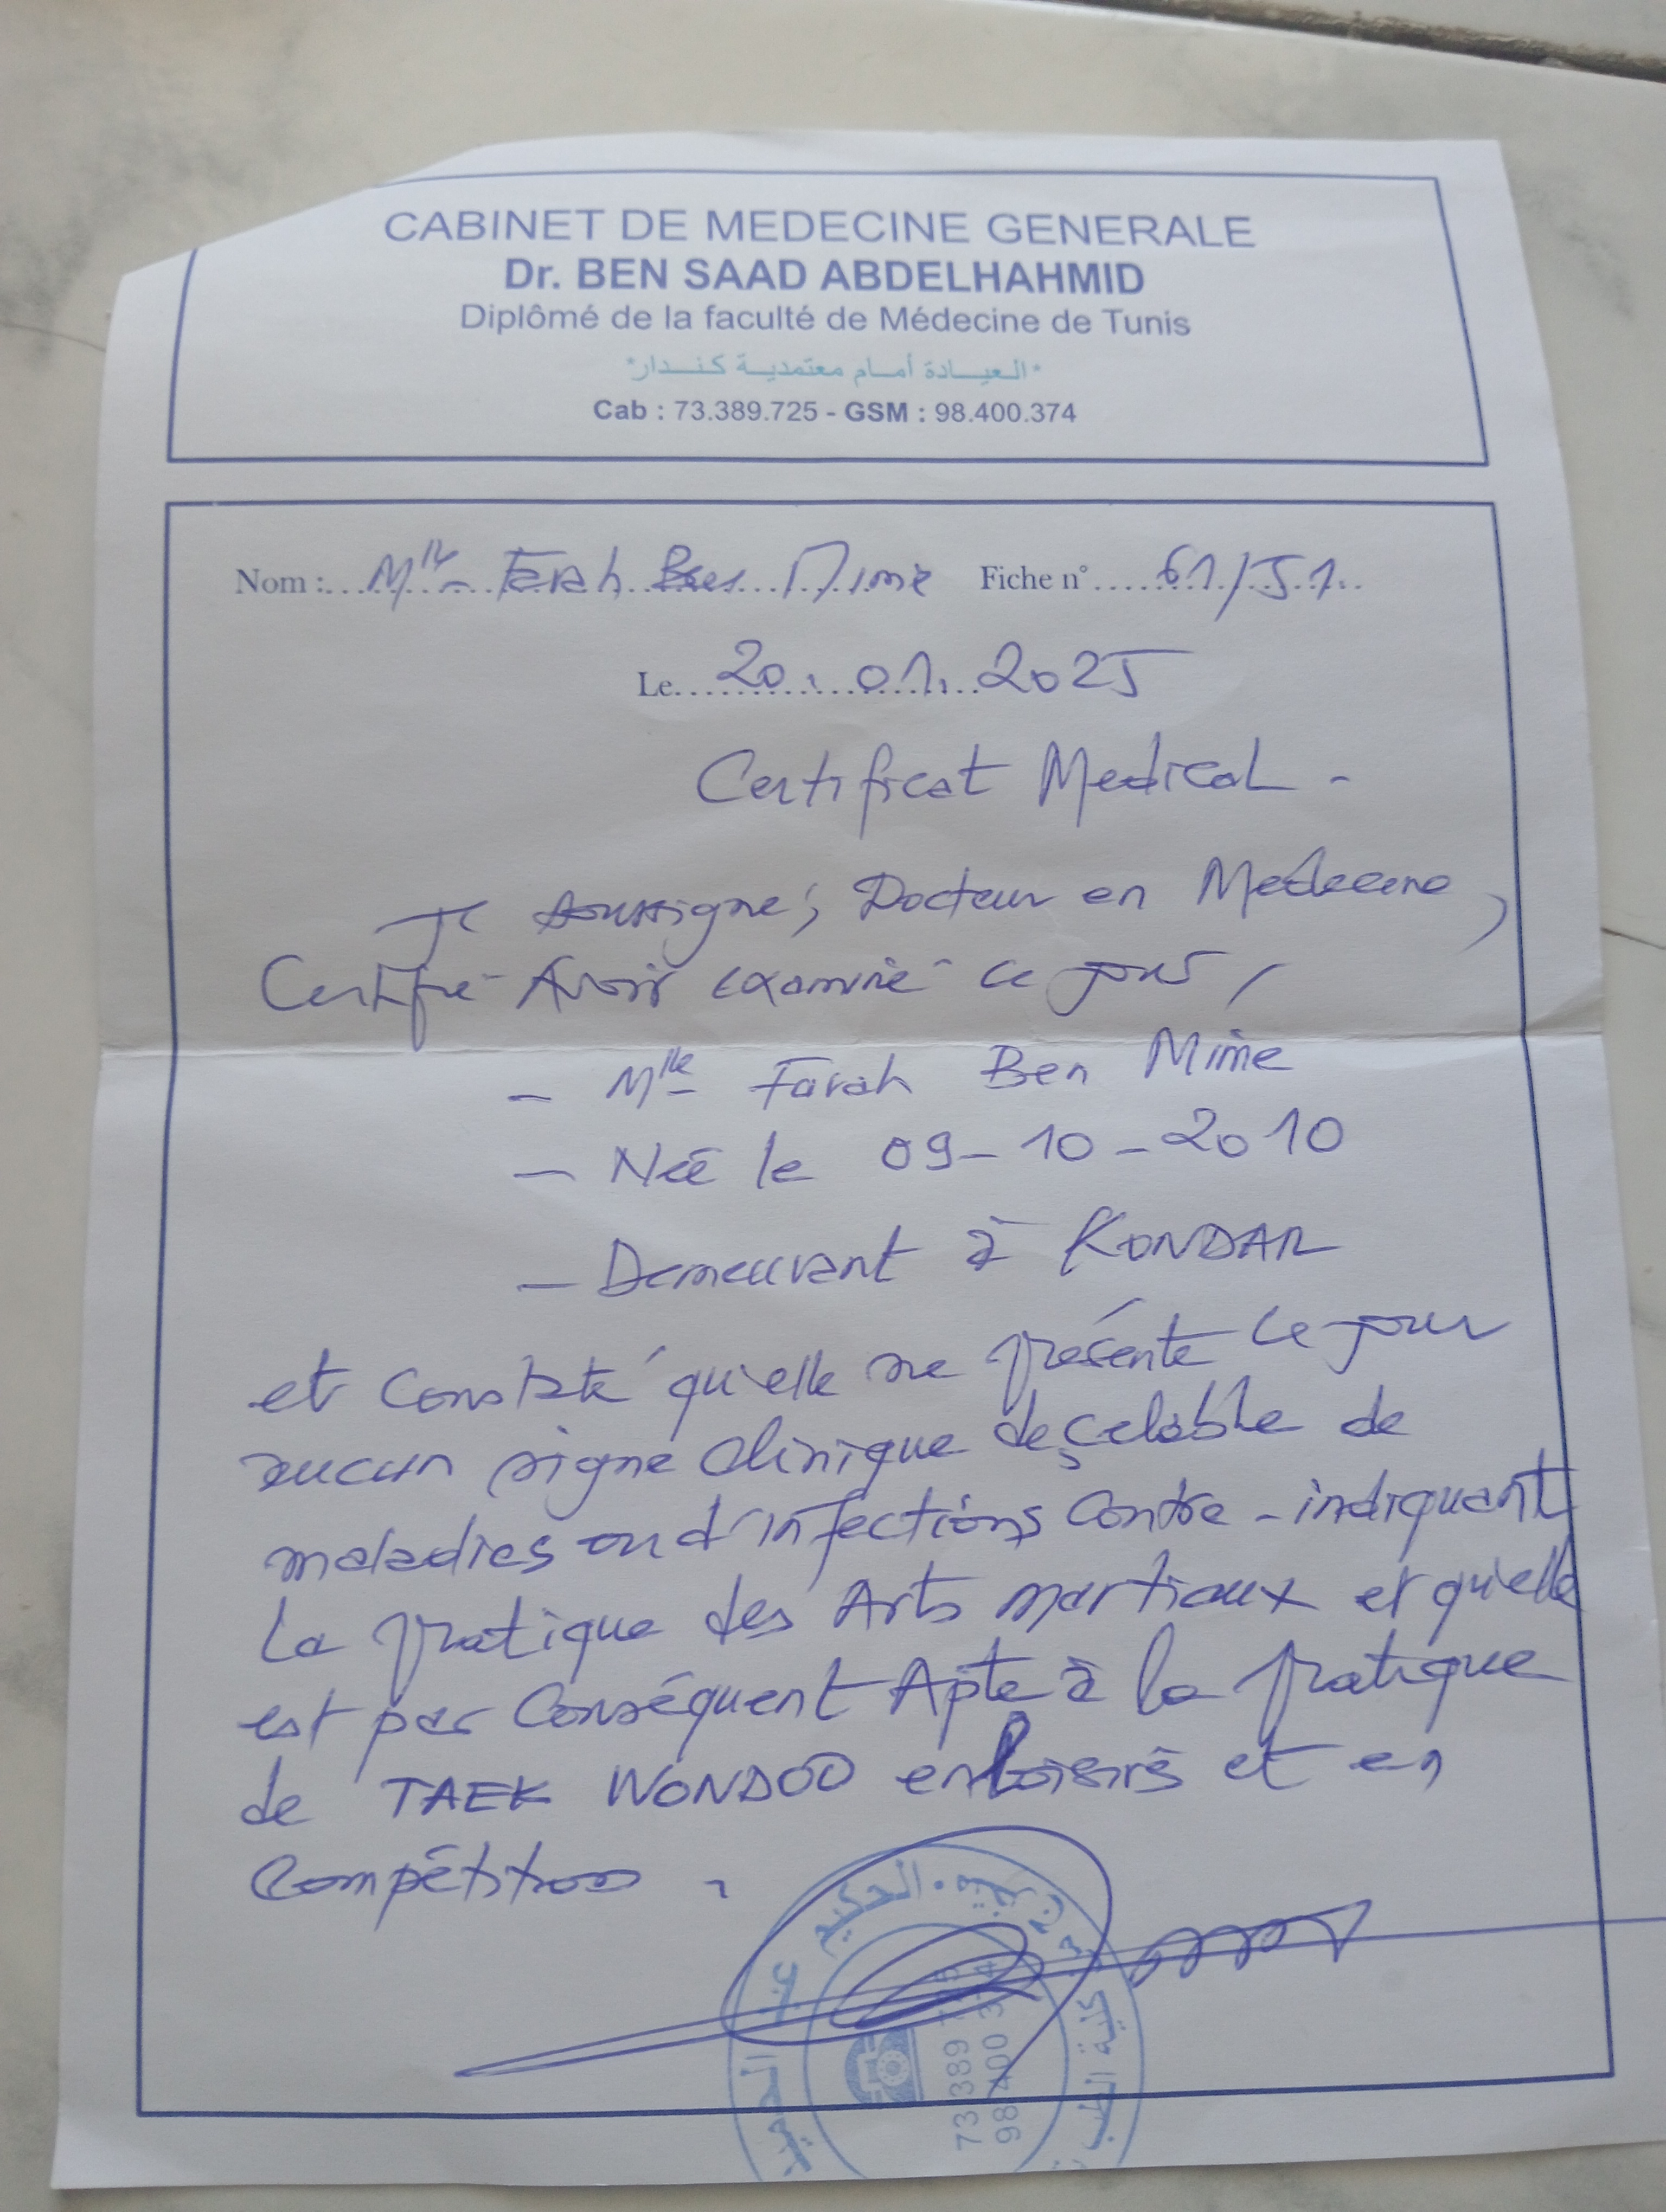 CABINET DE MEDECINE GENERALE
Dr. BEN SAAD ABDELHAHMID
Diplômé de la faculté de Médecine de Tunis
*العيادة أمام معتمدية كندار*
Cab : 73.389.725 - GSM : 98.400.374
Nom : Mlle Farah Ben Mime Fiche n° 61/51
Le 20.01.2025
Certificat Medical -
Je soussigné, Docteur en Medecine,
Certifie Avoir examiné ce jour,
- Mlle Farah Ben Mime
- Née le 09-10-2010
- Demeurant à KONDAR
et Constaté qu'elle ne présente ce jour
aucun signe clinique deçelable de
maladies ou d'infections contre-indiquant
la pratique des Arts martiaux et qu'elle
est par Conséquent Apte à la pratique
de TAEK WONDOO en loisirs et en
Compétition.
الحكيم
كلية الطب
73 389 725
98 400 374